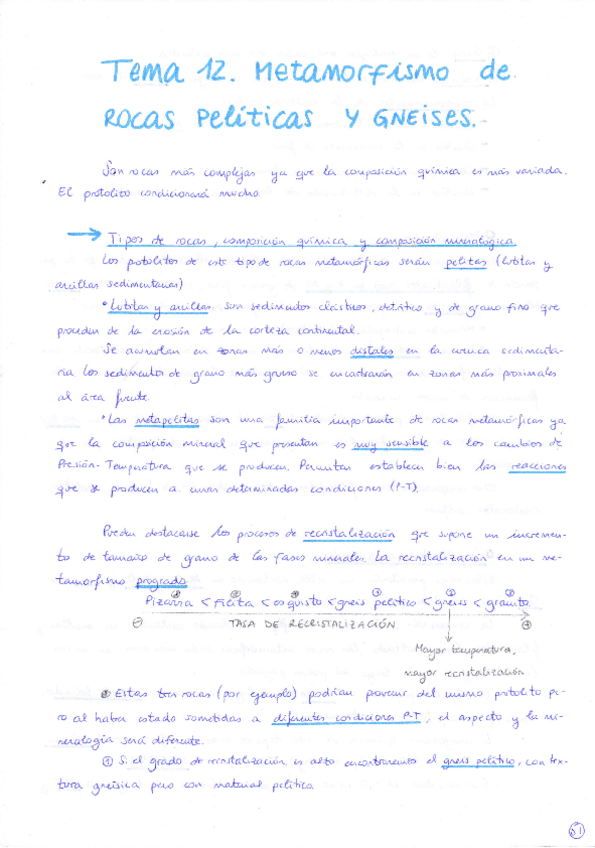 Tema 12. Metamorfismo de
rocas pelíticas y gneises.
Son rocas más complejas ya que la composición química es más variada.
El protolito condicionará mucho.
→ Tipos de rocas, composición química y composición mineralógica
Los protolitos de este tipo de rocas metamórficas serán pelitas (lutitas y
arcillas sedimentarias)
• Lutitas y arcillas son sedimentos clásticos, detrítico y de grano fino que
proceden de la erosión de la corteza continental.
Se acumulan en zonas más o menos distales en la cuenca sedimenta-
ria los sedimentos de grano más grueso se encontrarán en zonas más proximales
al área fuente.
• Las metapelitas son una familia importante de rocas metamórficas ya
que la composición mineral que presentan es muy sensible a los cambios de
Presión-Temperatura que se producen. Permiten establecer bien las reacciones
que se producen a unas determinadas condiciones (P-T).
Pueden destacarse los procesos de recristalización que supone un incremen-
to de tamaño de grano de las fases minerales. La recristalización en un me-
tamorfismo progrado
Pizarra < Filita < esquisto < gneis pelítico < gneises < granito
⊖ TASA DE RECRISTALIZACIÓN ⊕
Mayor temperatura,
mayor recristalización
Estas tres rocas (por ejemplo) podrían provenir del mismo protolito pe-
ro al haber estado sometidas a diferentes condiciones P-T, el aspecto y la mi-
neralogía será diferente.
① Si el grado de recristalización es alto encontraremos el gneis pelítico, con tex-
tura gneísica pero con material pelítico.
51